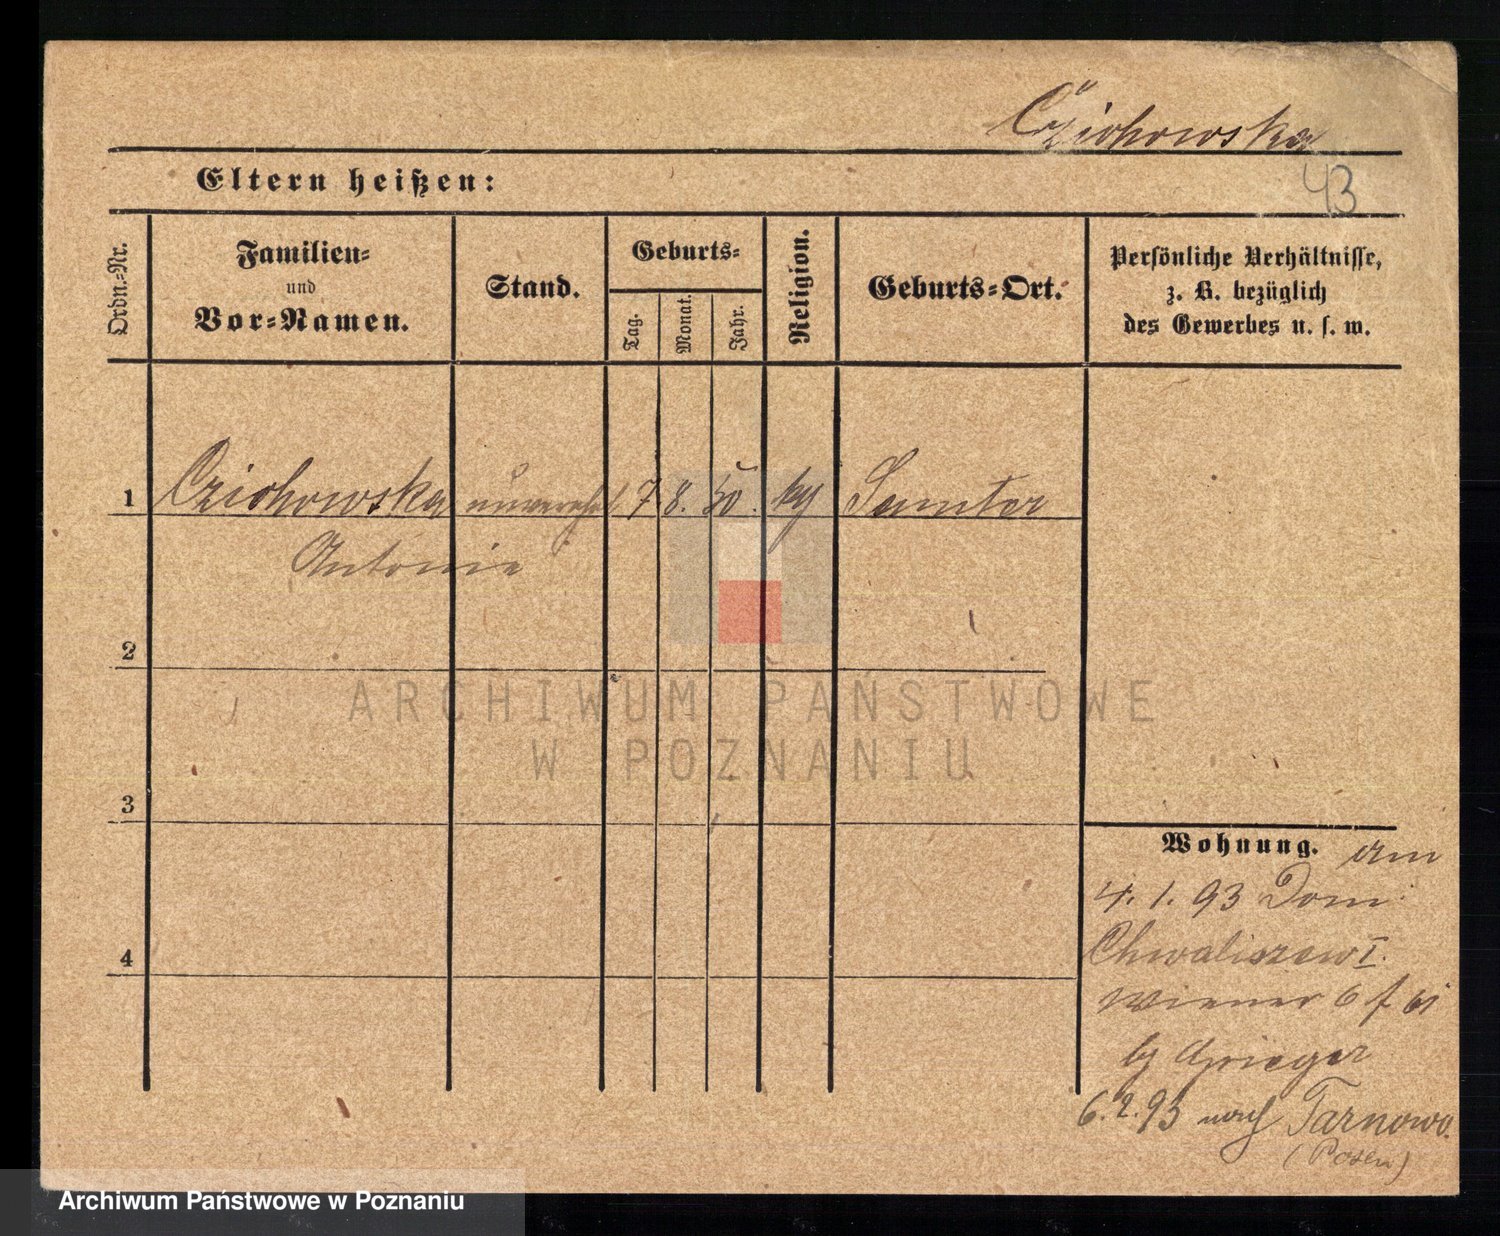 Cziohowska
Eltern heißen:
43
Ordn.-Nr.
Familien-
und
Vor-Namen.
Stand.
Geburts-
Tag.
Monat.
Jahr.
Religion.
Geburts-Ort.
Persönliche Verhältnisse,
z. B. bezüglich
des Gewerbes u. s. w.
1 Cziohowska unvereh. 7 8. 50. kg Samter
Antonie
2
3
4
Wohnung. am
4. 1. 93 Dom.
Chwaliszewo I.
Wiener 6
by Grieger
6. 2. 93 nach Tarnowo.
(Posen)
ARCHIWUM PAŃSTWOWE
W POZNANIU
Archiwum Państwowe w Poznaniu